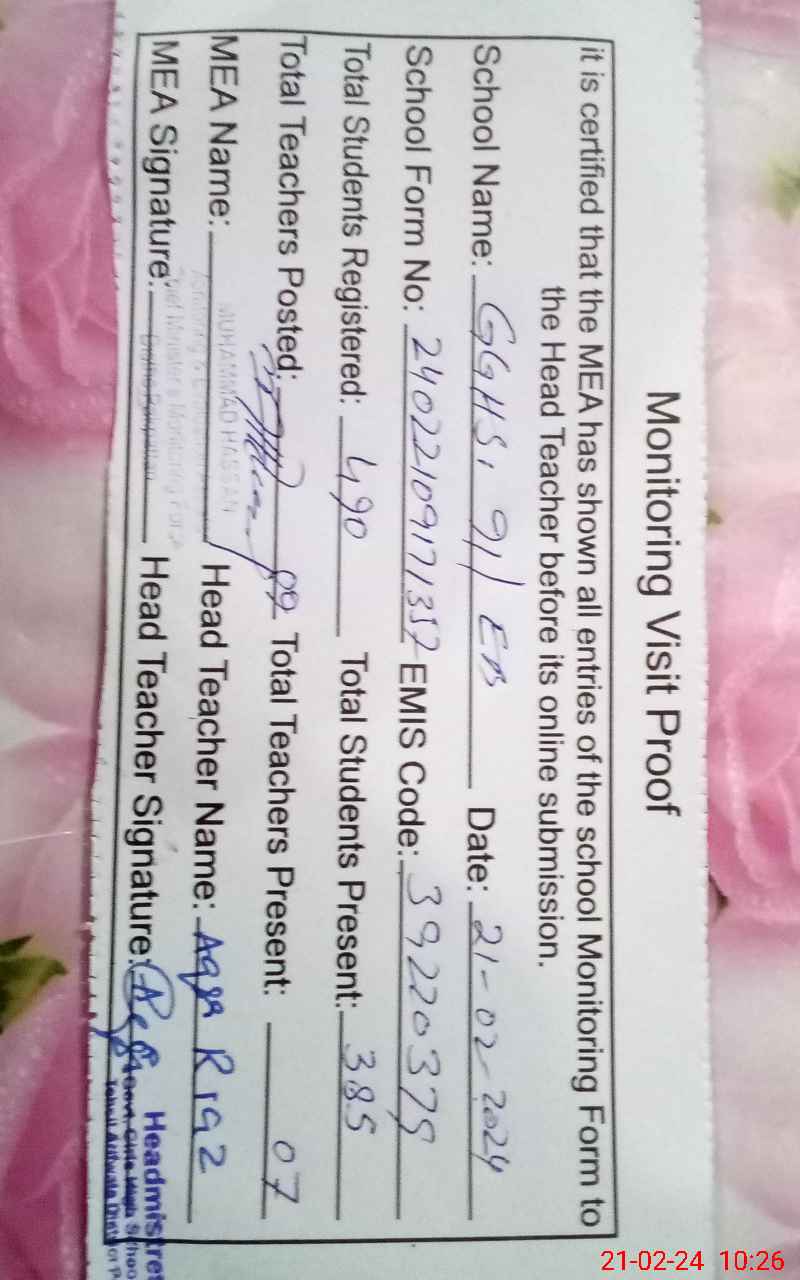 Monitoring Visit Proof
it is certified that the MEA has shown all entries of the school Monitoring Form to
the Head Teacher before its online submission.
School Name: GGHS, 91/EB Date: 21-02-2024
School Form No: 24022109171357 EMIS Code: 39220375
Total Students Registered: 490 Total Students Present: 385
Total Teachers Posted: 09 Total Teachers Present: 07
MEA Name: MUHAMMAD HASSAN Head Teacher Name: Aqsa Riaz
Chief Minister's Monitoring Force
MEA Signature: Head Teacher Signature: Aqsa
Headmistres
Govt. Girls High Schoo
21-02-24 10:26